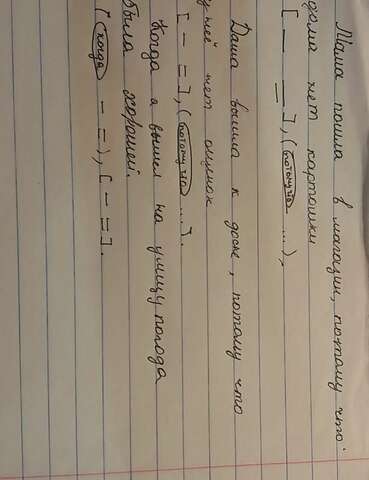 Мама пошла в магазин, потому что
дома нет картошки
[ — = ], (потому что ...),
Даша вышла к доске, потому что
у неё нет ошибок
[ — = ], (потому что ...).
Когда я вышел на улицу погода
была хорошей.
(когда — = ), [ — = ].